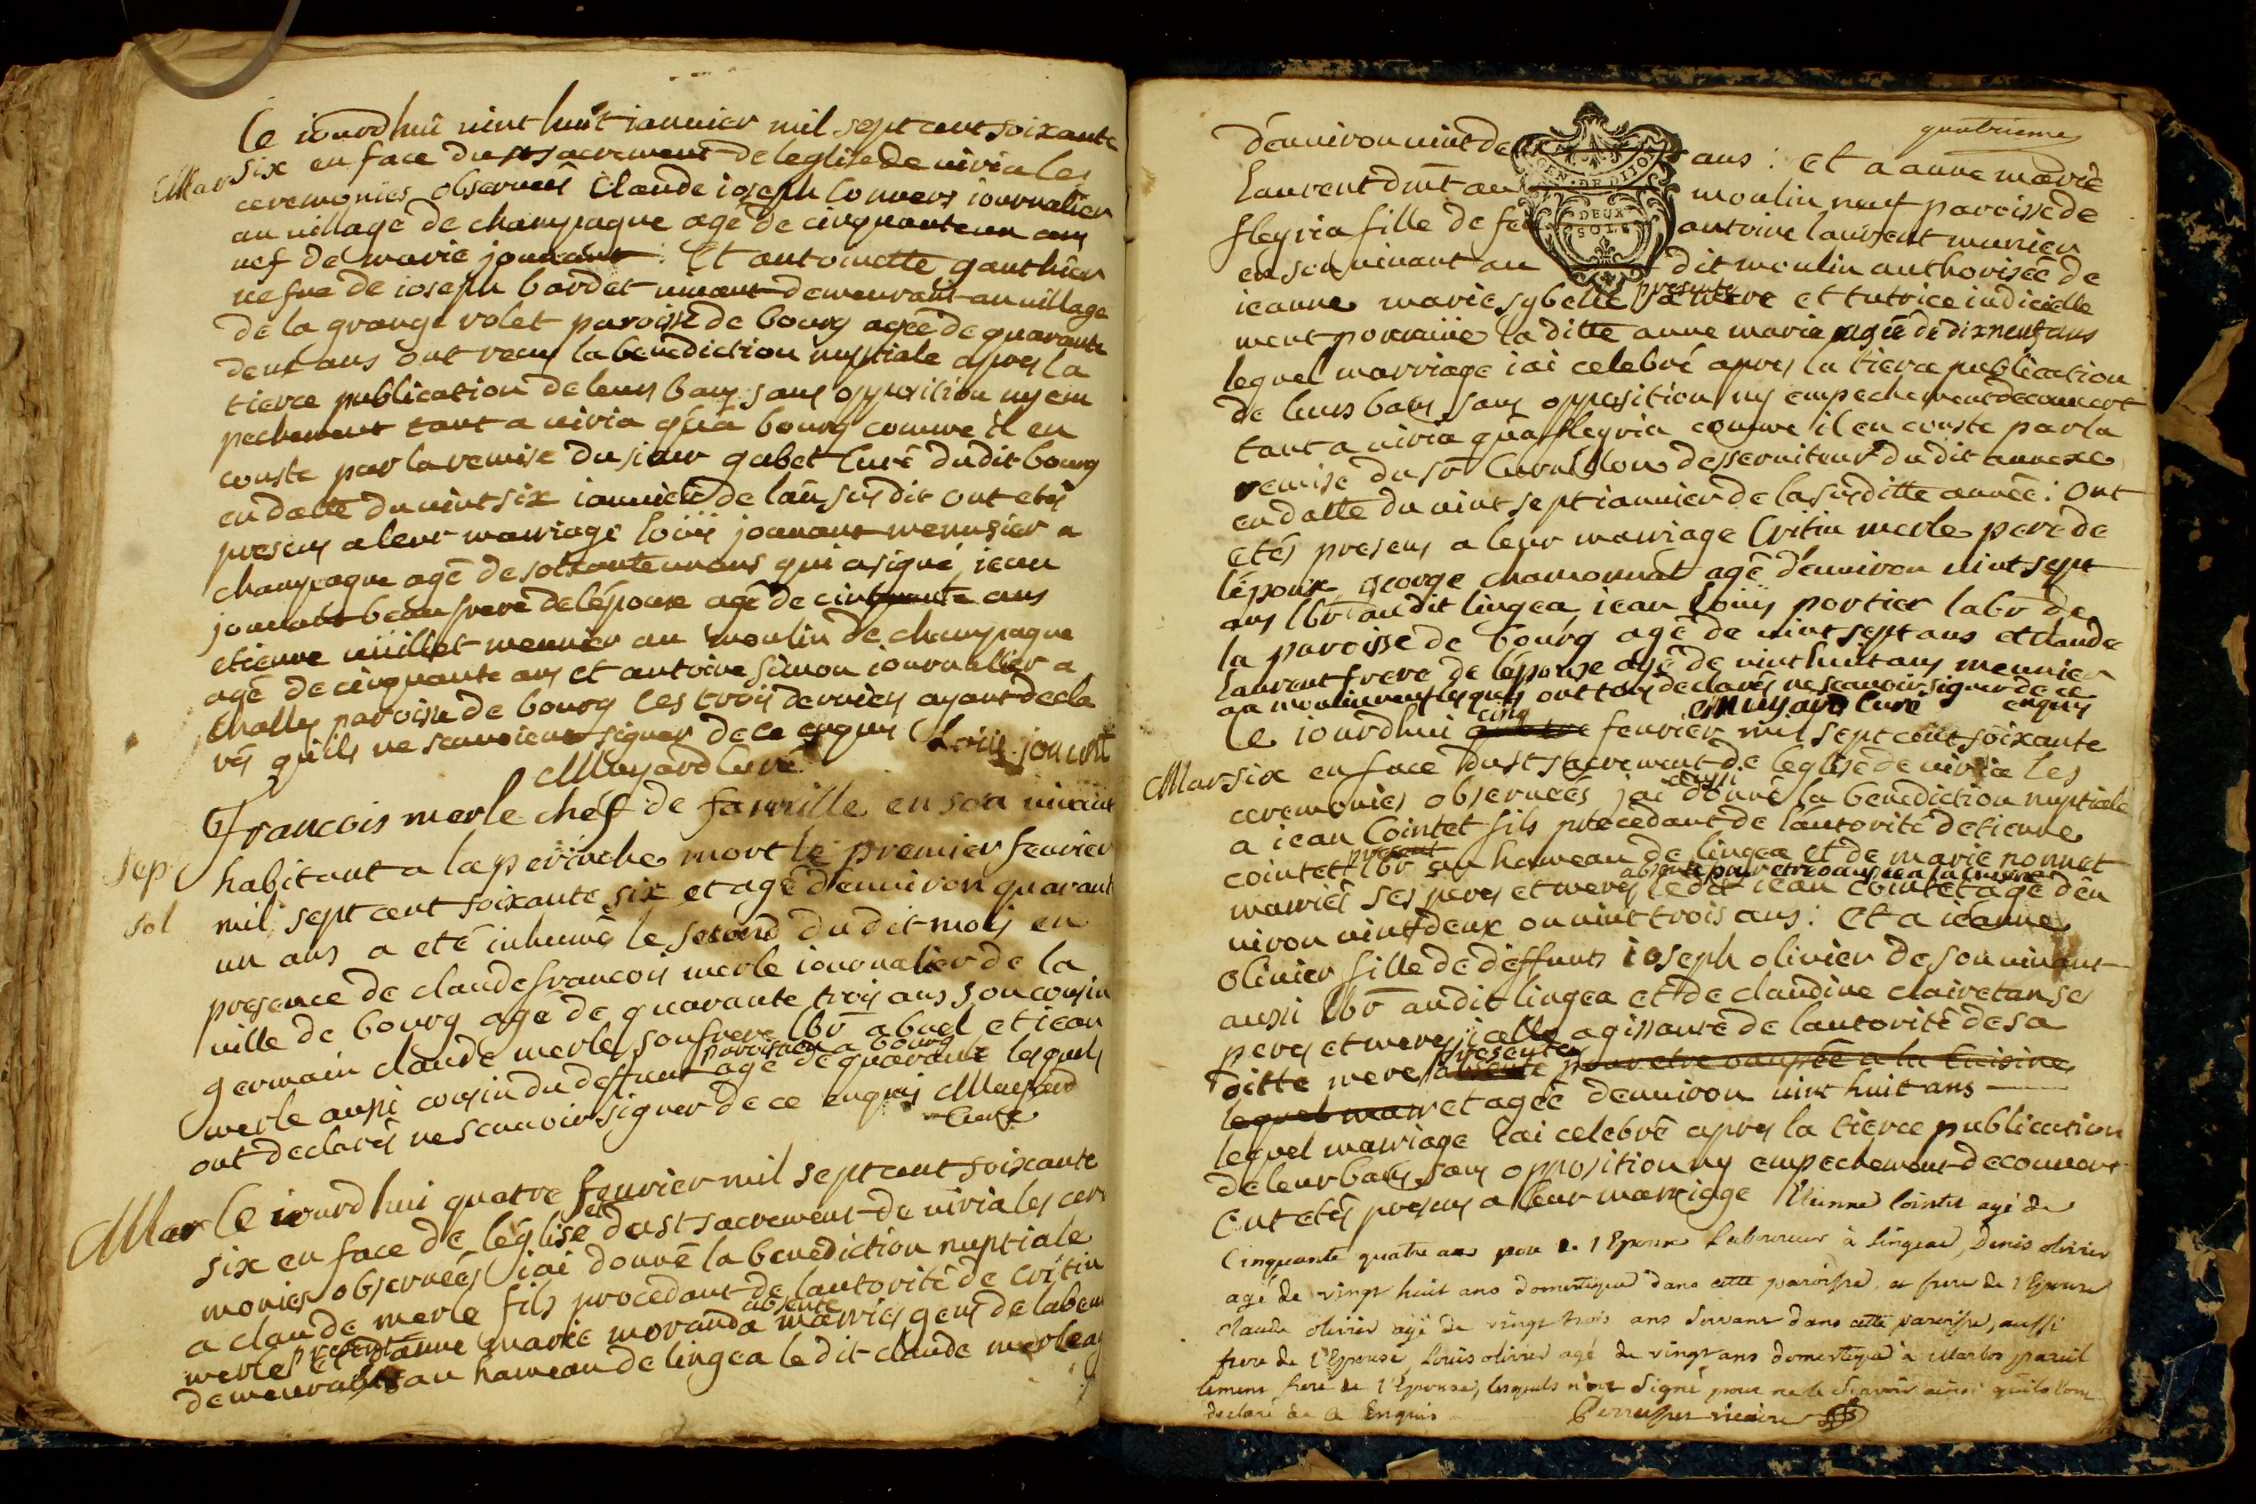 Ce iourdhui vint huit ianvier mil sept cent soixante
Mar six en face du st sacrement de leglise de viria les
ceremonies observeés Claude ioseph Convers iournalier
au village de champagne agé de cinquante un ans
vef de marie jounant : Et antoinette gauthier
vefve de ioseph bardet vivant demeurant au village
de la grange volet paroisse de bourg agée de quarante
deux ans ont receu la benediction nuptiale apres la
tierce publication de leurs bans sans opposition ny em
pechement tant a viria qu'a bourg comme il en
conste par la remise du sieur gabet Curé dudit bourg
en datte du vint six ianvier de lan susdit ont etés
presens a leur marriage loüis jounant menusier a
champagne agé de soixante un ans qui a signé, iean
jounant beau frere de l'épouse agé de cinquante ans
etienne müillet meunier au moulin de champagne
agé de cinquante ans et antoine simon iournallier a
Challes paroisse de bourg les trois derniers ayant decla
rés qu'ils ne scavoient signer de ce enquis Loüis jounnt
Muyard Curé
Francois merle chef de famille en son vivant
Sep habitant a la perinche mort le premier fevrier
sol mil sept cent soixante six et agé d'environ quarant
un ans a eté inhumé le second dudit mois en
presence de claude francois merle iournalier de la
ville de bourg agé de quarante trois ans son cousin
germain claude merle son frere lbr abuel et iean
paroissien a bourg
merle aussi cousin du deffunt agé de quarante lesquels
ont declarés ne scavoir signer de ce enquis Muyard
Curé
Mar Ce iourdhui quatre fevrier mil sept cent soixante
six en face de leglise et du st sacrement de viria les cere
monies observeés iai donné la benediction nuptiale
a claude merle fils procedant de lautorité de Critin
present absente
merle et danne marie moranda marriés gens de labeur
demeurants au hameau de lingea le dit claude merle agé
quatrieme
d'environ vint deux ans : et a anne marie
laurent dmt au moulin neuf paroisse de
fleyria fille de feu antoine laurent munier
en son vivant au dit moulin authorisée de
presente
ieanne marie sybelle sa mere et tutrice iudicielle
ment pourvüe la ditte anne marie agée de dix neuf ans
lequel marriage iai celebré apres la tierce publication
de leurs bans sans opposition ny empechement decouvert
tant a viria qu'a fleyria comme il en conste par la
remise du sr desserviteur du dit annexe
en datte du vint sept ianvier de la susditte année : Ont
etés presens a leur marriage Critin merle pere de
l'époux, george chamonnat agé d'environ vint sept
ans lbr au dit lingea, iean loüis portier labr de
la paroisse de bourg agé de vint sept ans et claude
laurent frere de l'épouse agé de vint huit ans meunier
au moulin neuf lesquels ont tous declarés ne scavoir signer de ce
Muyard Curé enquis
cinq
Ce iourdhui quatre fevrier mil sept cent soixante
Mar six en face du st sacrement de leglise de viria les
aussi
ceremonies observeés jai donné la benediction nuptiale
a iean Cointet fils procedant de lautorité detienne
present
cointet lbr au hameau de lingea et de marie nonnet
absente pour etre
marriés ses peres et meres le dit iean cointet agé d'en
viron vint deux ou vint trois ans : Et a ieanne
olivier fille de deffunts ioseph olivier de son vivant
aussi lbr audit lingea et de claudine clairetan ses
peres et meres icelle agissante de lautorité de sa
presente
ditte mere absente pour etre a la
lequel marr et agée denviron vint huit ans
lequel marriage iai celebré apres la tierce publication
de leur bans sans opposition ny empechement decouvert
Ont etés presens a leur marriage Etienne Cointet agé de
Cinquante quatre ans pere de l'Epoux Laboureur à Lingeat, Denis olivier
agé de vingt huit ans domestique dans cette paroisse et frere de l'Epouse
Claude olivier agé de vingt trois ans servant dans cette paroisse, aussi
frere de l'Epouse, Louis olivier agé de vingt ans domestique a Marbos pareil
lement frere de l'Epouse, lesquels n'ont signé pour ne le scavoir ainsi qu'ils l'ont
declaré de ce Enquis vicaire
GEN. DE DIJON
DEUX
SOLS